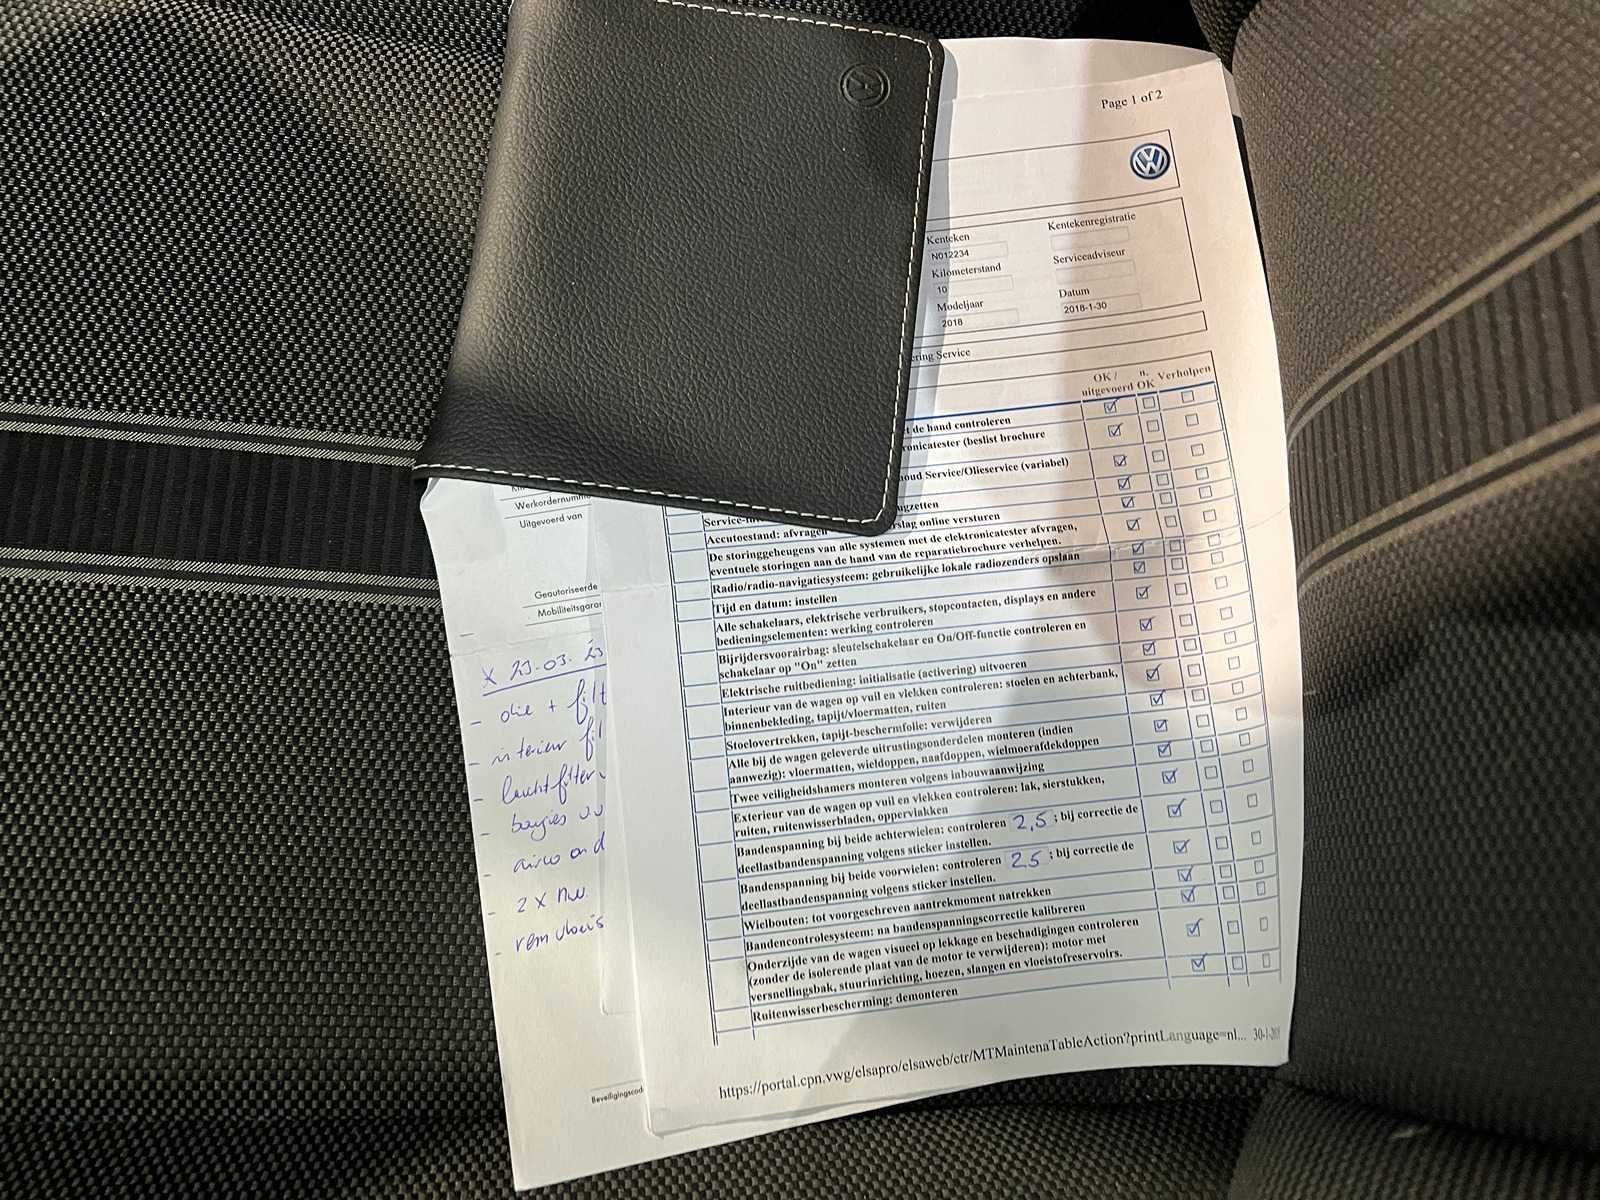 Page 1 of 2
Kenteken
Kentekenregistratie
N012234
Kilometerstand
Serviceadviseur
10
Modeljaar
Datum
2018
2018-1-30
ering Service
OK / uitgevoerd
n. OK
Verholpen
de hand controleren
ronicatester (beslist brochure
houd Service/Olieservice (variabel)
ugzetten
Accutoestand: afvragen
rslag online versturen
De storinggeheugens van alle systemen met de elektronicatester afvragen,
eventuele storingen aan de hand van de reparatiebrochure verhelpen.
Radio/radio-navigatiesysteem: gebruikelijke lokale radiozenders opslaan
Tijd en datum: instellen
Alle schakelaars, elektrische verbruikers, stopcontacten, displays en andere
bedieningselementen: werking controleren
Bijrijdersvoorairbag: sleutelschakelaar en On/Off-functie controleren en
schakelaar op "On" zetten
Elektrische ruitbediening: initialisatie (activering) uitvoeren
Interieur van de wagen op vuil en vlekken controleren: stoelen en achterbank,
binnenbekleding, tapijt/vloermatten, ruiten
Stoelovertrekken, tapijt-beschermfolie: verwijderen
Alle bij de wagen geleverde uitrustingsonderdelen monteren (indien
aanwezig): vloermatten, wieldoppen, naafdoppen, wielmoerafdekdoppen
Twee veiligheidshamers monteren volgens inbouwaanwijzing
Exterieur van de wagen op vuil en vlekken controleren: lak, sierstukken,
ruiten, ruitenwisserbladen, oppervlakken
Bandenspanning bij beide achterwielen: controleren 2,5 ; bij correctie de
deellastbandenspanning volgens sticker instellen.
Bandenspanning bij beide voorwielen: controleren 2.5 ; bij correctie de
deellastbandenspanning volgens sticker instellen.
Wielbouten: tot voorgeschreven aantrekmoment natrekken
Bandencontrolesysteem: na bandenspanningscorrectie kalibreren
Onderzijde van de wagen visueel op lekkage en beschadigingen controleren
(zonder de isolerende plaat van de motor te verwijderen): motor met
versnellingsbak, stuurinrichting, hoezen, slangen en vloeistofreservoirs.
Ruitenwisserbescherming: demonteren
https://portal.cpn.vwg/elsapro/elsaweb/ctr/MTMaintenaTableAction?printLanguage=nl...
Werkordernumme
Uitgevoerd van
Geautoriseerde
Mobiliteitsgarar
x 23-03-23
- olie + filt
- interieur fil
- luchtfilter
- bougies
- airco ond
- 2 x
- remvloeis
Beveiligingscod